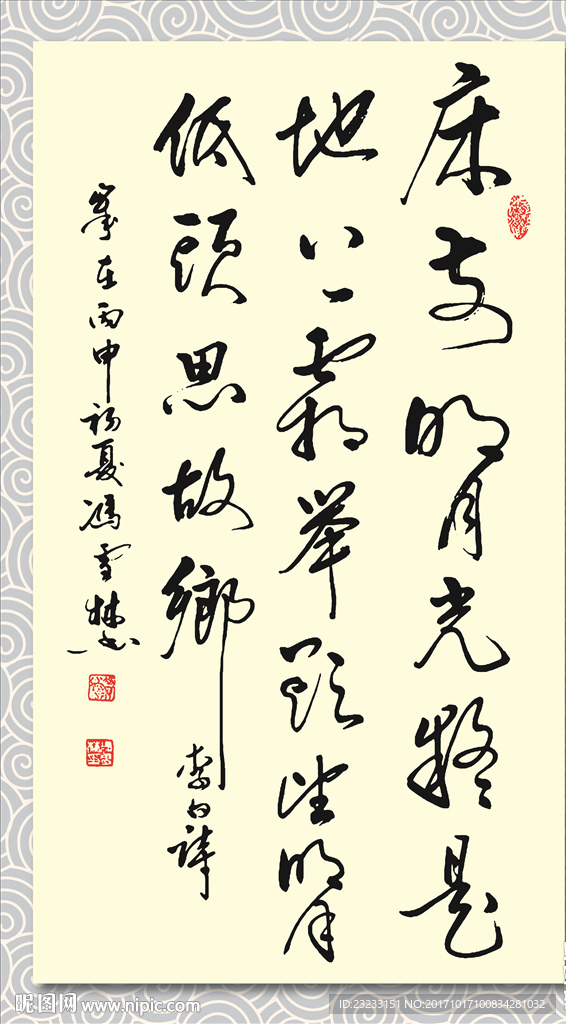 床前明月光疑是
地上霜举頭望明月
低頭思故鄉
李白詩
歲在丙申初夏馮雪林书
昵图网 www.nipic.com
ID:23233151 NO:20171017100834281032